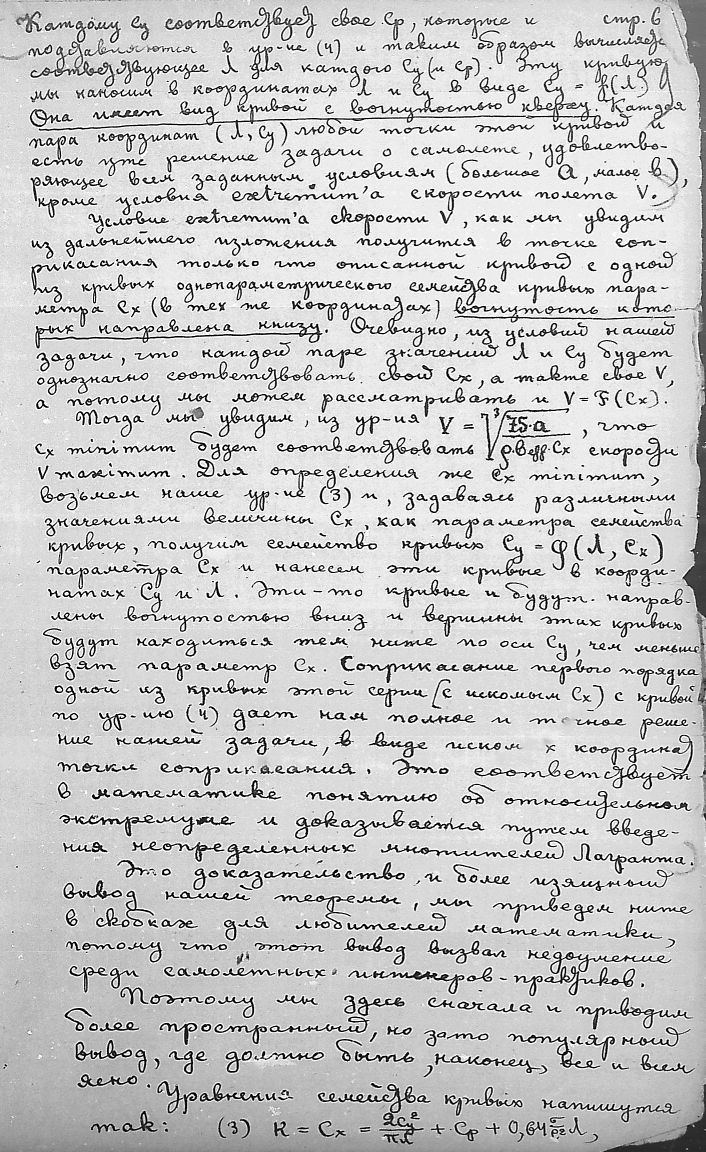 Каждому Cy соответствует свое Cp, которые и стр. 6
подставляются в ур-ие (4) и таким образом вычисляем
соответствующее Λ для каждого Cy (и Cp). Эту кривую
мы наносим в координатах Λ и Cy в виде Cy = f(Λ.)
Она имеет вид кривой с вогнутостью кверху. Каждая
пара координат (Λ, Cy) любой точки этой кривой и
есть уже решение задачи о самолете, удовлетво-
ряющее всем заданным условиям (большое a, малое в),
кроме условия extremum'а скорости полета V.
Условие extremum'а скорости V, как мы увидим
из дальнейшего изложения получится в точке соп-
рикасания только что описанной кривой с одной
из кривых однопараметрического семейства кривых пара-
метра Cx (в тех же координатах) вогнутость кото-
рых направлена книзу. Очевидно, из условий нашей
задачи, что каждой паре значений Λ и Cy будет
однозначно соответствовать свой Cx, а также свое V,
а потому мы можем рассматривать и V = F(Cx).
Тогда мы увидим, из ур-ия V = ∛(75·a / ρ·в eff·Cx), что
Cx minimum будет соответствовать скорости
V maximum. Для определения же Cx minimum,
возьмем наше ур-ие (3) и, задаваясь различными
значениями величины Cx, как параметра семейства
кривых, получим семейство кривых Cy = φ(Λ, Cx)
параметра Cx и нанесем эти кривые в коорди-
натах Cy и Λ. Эти-то кривые и будут направ-
лены вогнутостью вниз и вершины этих кривых
будут находиться тем ниже по оси Cy, чем меньше
взят параметр Cx. Соприкасание первого порядка
одной из кривых этой серии (с искомым Cx) с кривой
по ур-ию (4) дает нам полное и точное реше-
ние нашей задачи, в виде иском х координат
точки соприкасания. Это соответствует
в математике понятию об относительном
экстремуме и доказывается путем введе-
ния неопределенных множителей Лагранжа.
Это доказательство, и более изящный
вывод нашей теоремы, мы приведем ниже
в скобках для любителей математики,
потому что этот вывод вызвал недоумение
среди самолетных инженеров-практиков.
Поэтому мы здесь сначала и приводим
более пространный, но зато популярный
вывод, где должно быть, наконец, все и всем
ясно.
Уравнения семейства кривых напишутся
так: (3) K = Cx = 2Cy²/πΛ + Cp + 0,64 Λ,